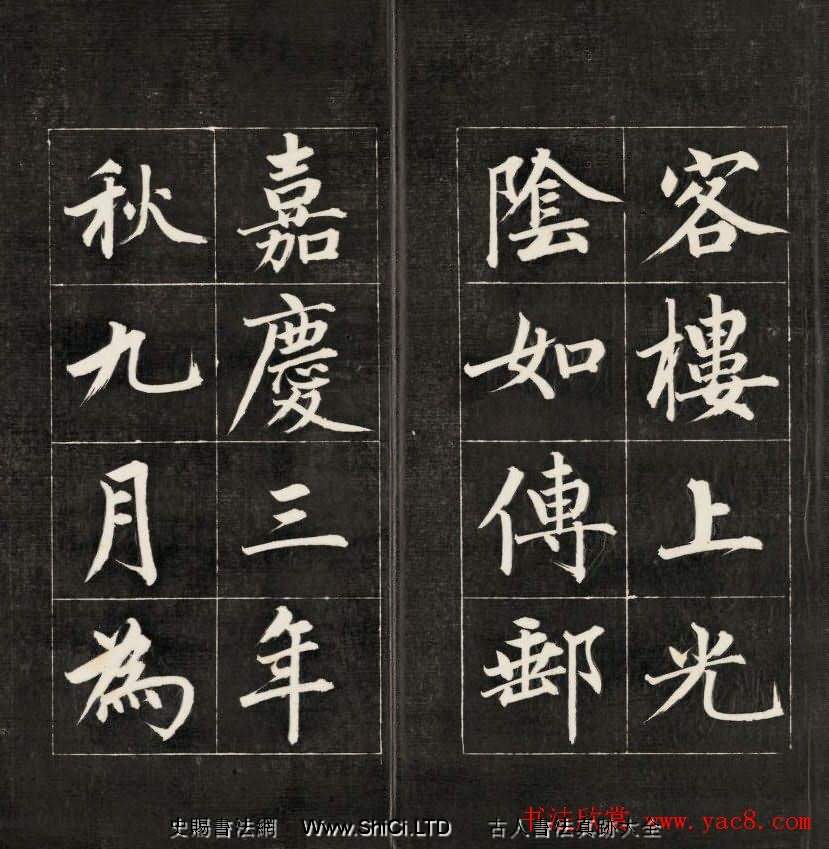 客樓上光
陰如傳郵
嘉慶三年
秋九月為
书法欣赏 www.yac8.com
史賜書法網 Www.ShiCi.LTD 古人書法真跡大全